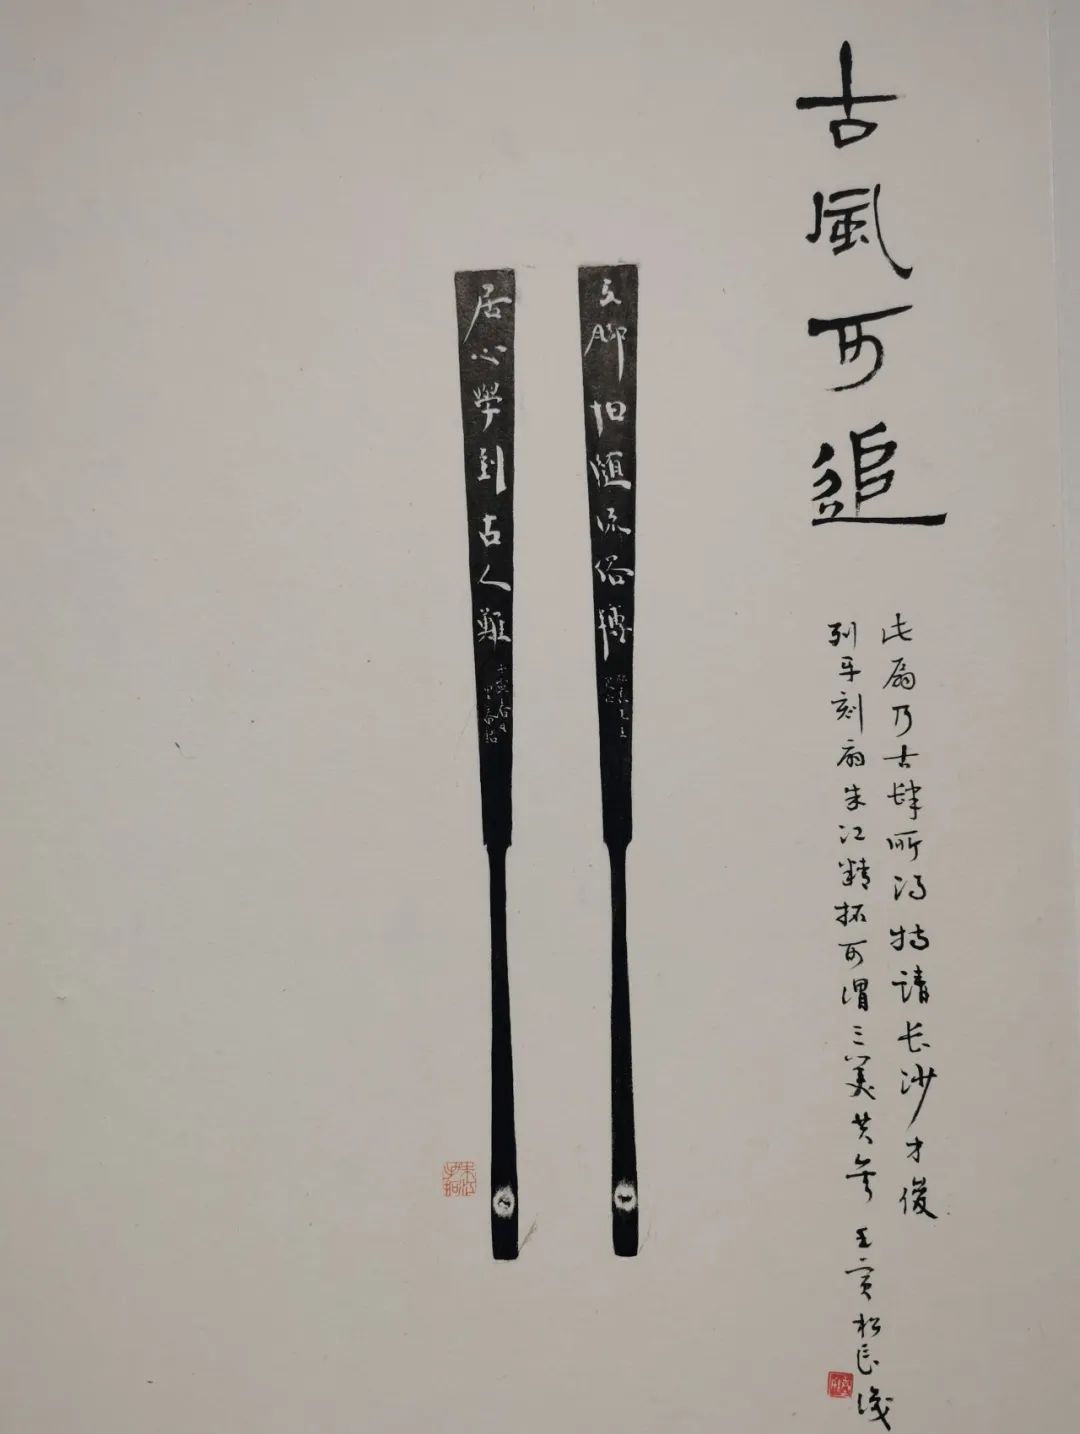 古風可追
此扇乃古肆所得特請長沙才俊
列牙刻扇朱江精拓可谓三美共
壬寅松長
立脚怕随流俗轉
居心學到古人難
朱江手拓